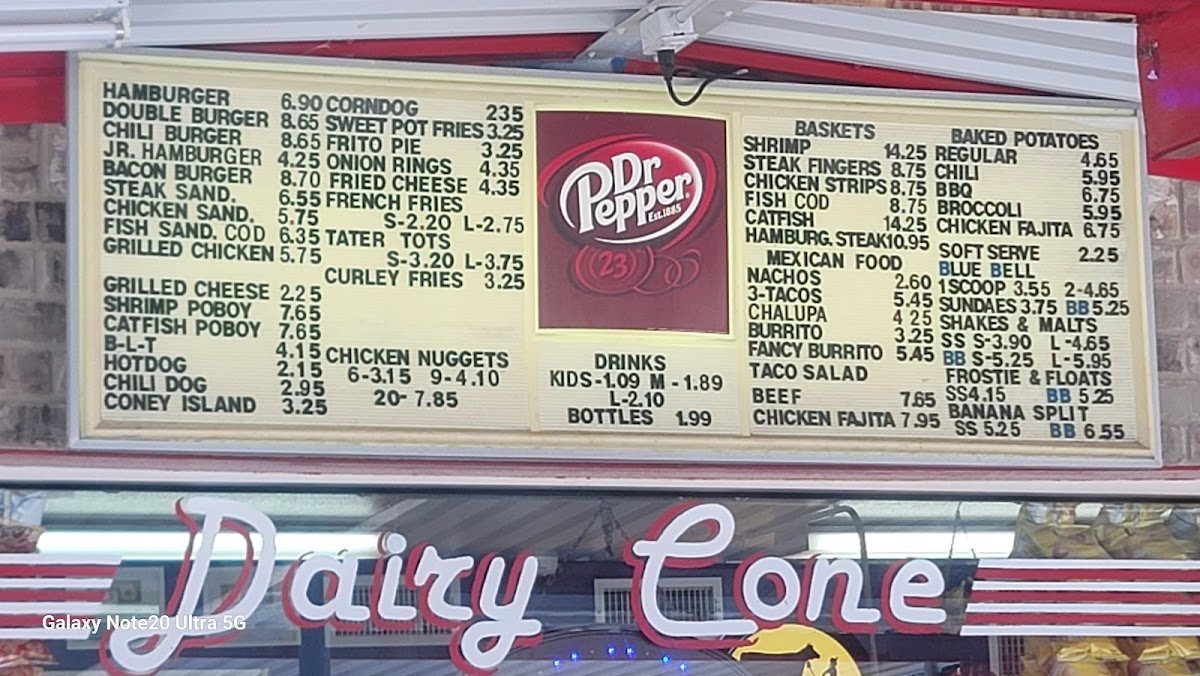 HAMBURGER 6.90
DOUBLE BURGER 8.65
CHILI BURGER 8.65
JR. HAMBURGER 4.25
BACON BURGER 8.70
STEAK SAND. 6.55
CHICKEN SAND. 5.75
FISH SAND. COD 6.35
GRILLED CHICKEN 5.75
GRILLED CHEESE 2.25
SHRIMP POBOY 7.65
CATFISH POBOY 7.65
B-L-T 4.15
HOTDOG 2.15
CHILI DOG 2.95
CONEY ISLAND 3.25
CORNDOG 235
SWEET POT FRIES 3.25
FRITO PIE 3.25
ONION RINGS 4.35
FRIED CHEESE 4.35
FRENCH FRIES
S-2.20 L-2.75
TATER TOTS
S-3.20 L-3.75
CURLEY FRIES 3.25
CHICKEN NUGGETS
6-3.15 9-4.10
20-7.85
Dr
Pepper
Est.1885
23
DRINKS
KIDS-1.09 M-1.89
L-2.10
BOTTLES 1.99
BASKETS
SHRIMP 14.25
STEAK FINGERS 8.75
CHICKEN STRIPS 8.75
FISH COD 8.75
CATFISH 14.25
HAMBURG. STEAK 10.95
MEXICAN FOOD
NACHOS 2.60
3-TACOS 5.45
CHALUPA 4 25
BURRITO 3.25
FANCY BURRITO 5.45
TACO SALAD
BEEF 7.65
CHICKEN FAJITA 7.95
BAKED POTATOES
REGULAR 4.65
CHILI 5.95
BBQ 6.75
BROCCOLI 5.95
CHICKEN FAJITA 6.75
SOFT SERVE 2.25
BLUE BELL
1 SCOOP 3.55 2-4.65
SUNDAES 3.75 BB 5.25
SHAKES & MALTS
SS S-3.90 L-4.65
BB S-5.25 L-5.95
FROSTIE & FLOATS
SS4.15 BB 5.25
BANANA SPLIT
SS 5.25 BB 6.55
Dairy Cone
Galaxy Note20 Ultra 5G